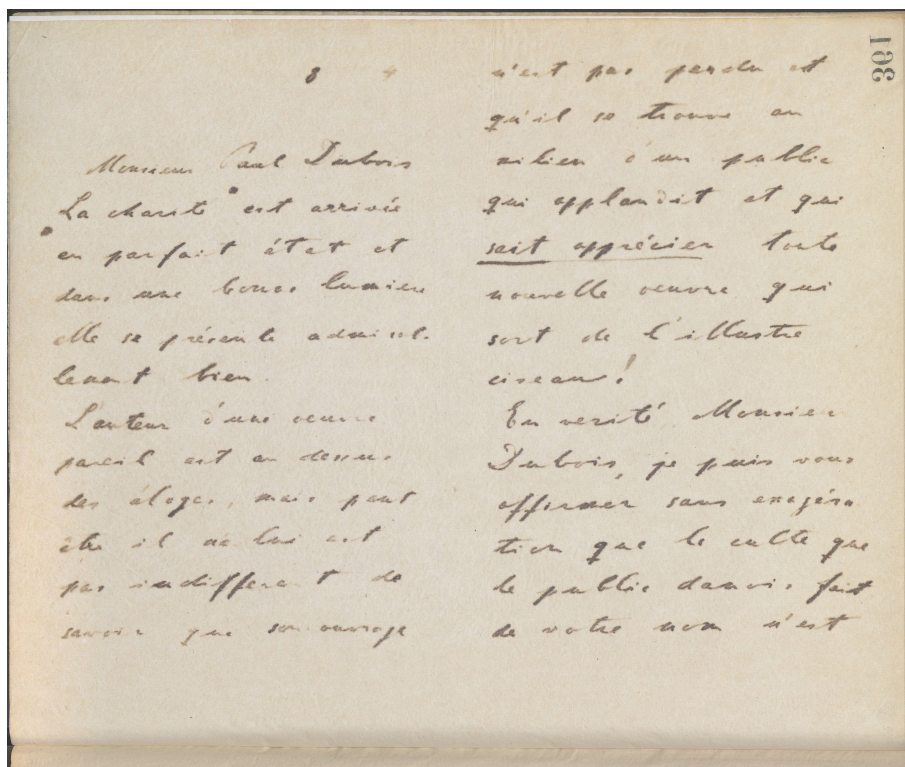 8 4
Monsieur Paul Dubois
"La charité" est arrivée
en parfait état et
dans une bonne lumiere
elle se présente admirab-
lement bien.
L'auteur d'une oeuvre
pareil est au dessus
des éloges, mais peut
être il ne lui est
pas indifferent de
savoir que son ouvrage
n'est pas perdu et
qu'il se trouve au
milieu d'un public
qui applaudit et qui
sait apprécier toute
nouvelle oeuvre qui
sort de l'illustre
ciseau!
En verité Monsieur
Dubois, je puis vous
affirmer sans exagéra
tion que le culte que
le public danois fait
de votre nom n'est
198